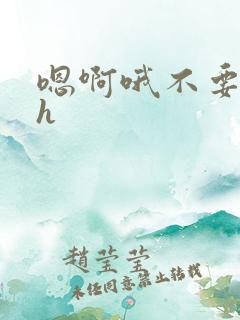 嗯啊哦不要
h
趙莹莹
未经同意禁止转载